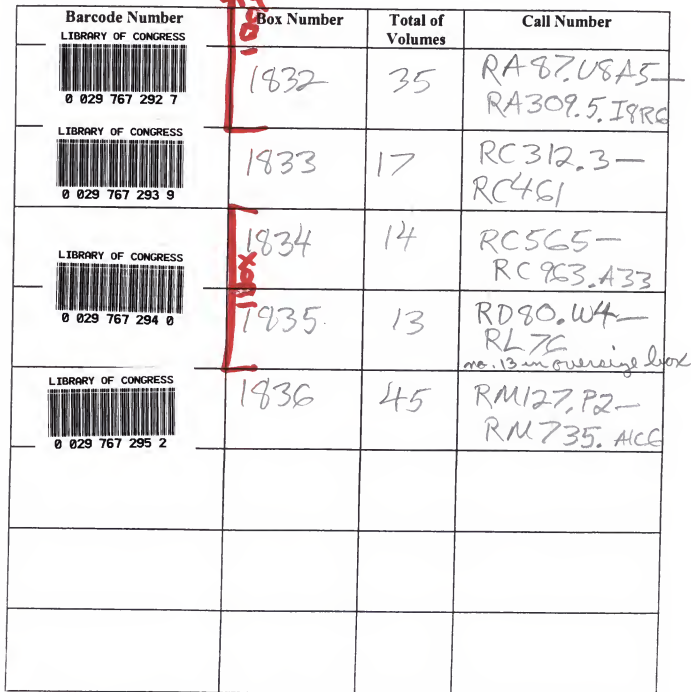 Barcode Number Box Number Total of Volumes Call Number
LIBRARY OF CONGRESS
0 029 767 292 7
1832 35 RA87.U8A5—
RA309.5.I8R6
LIBRARY OF CONGRESS
0 029 767 293 9
1833 17 RC312.3—
RC461
LIBRARY OF CONGRESS
0 029 767 294 0
1 Box
1834 14 RC565—
RC963.A33
1835. 13 RD80.W4—
RL76
no. 13 in oversize box
LIBRARY OF CONGRESS
0 029 767 295 2
1836 45 RM127.P2—
RM735.A1C6